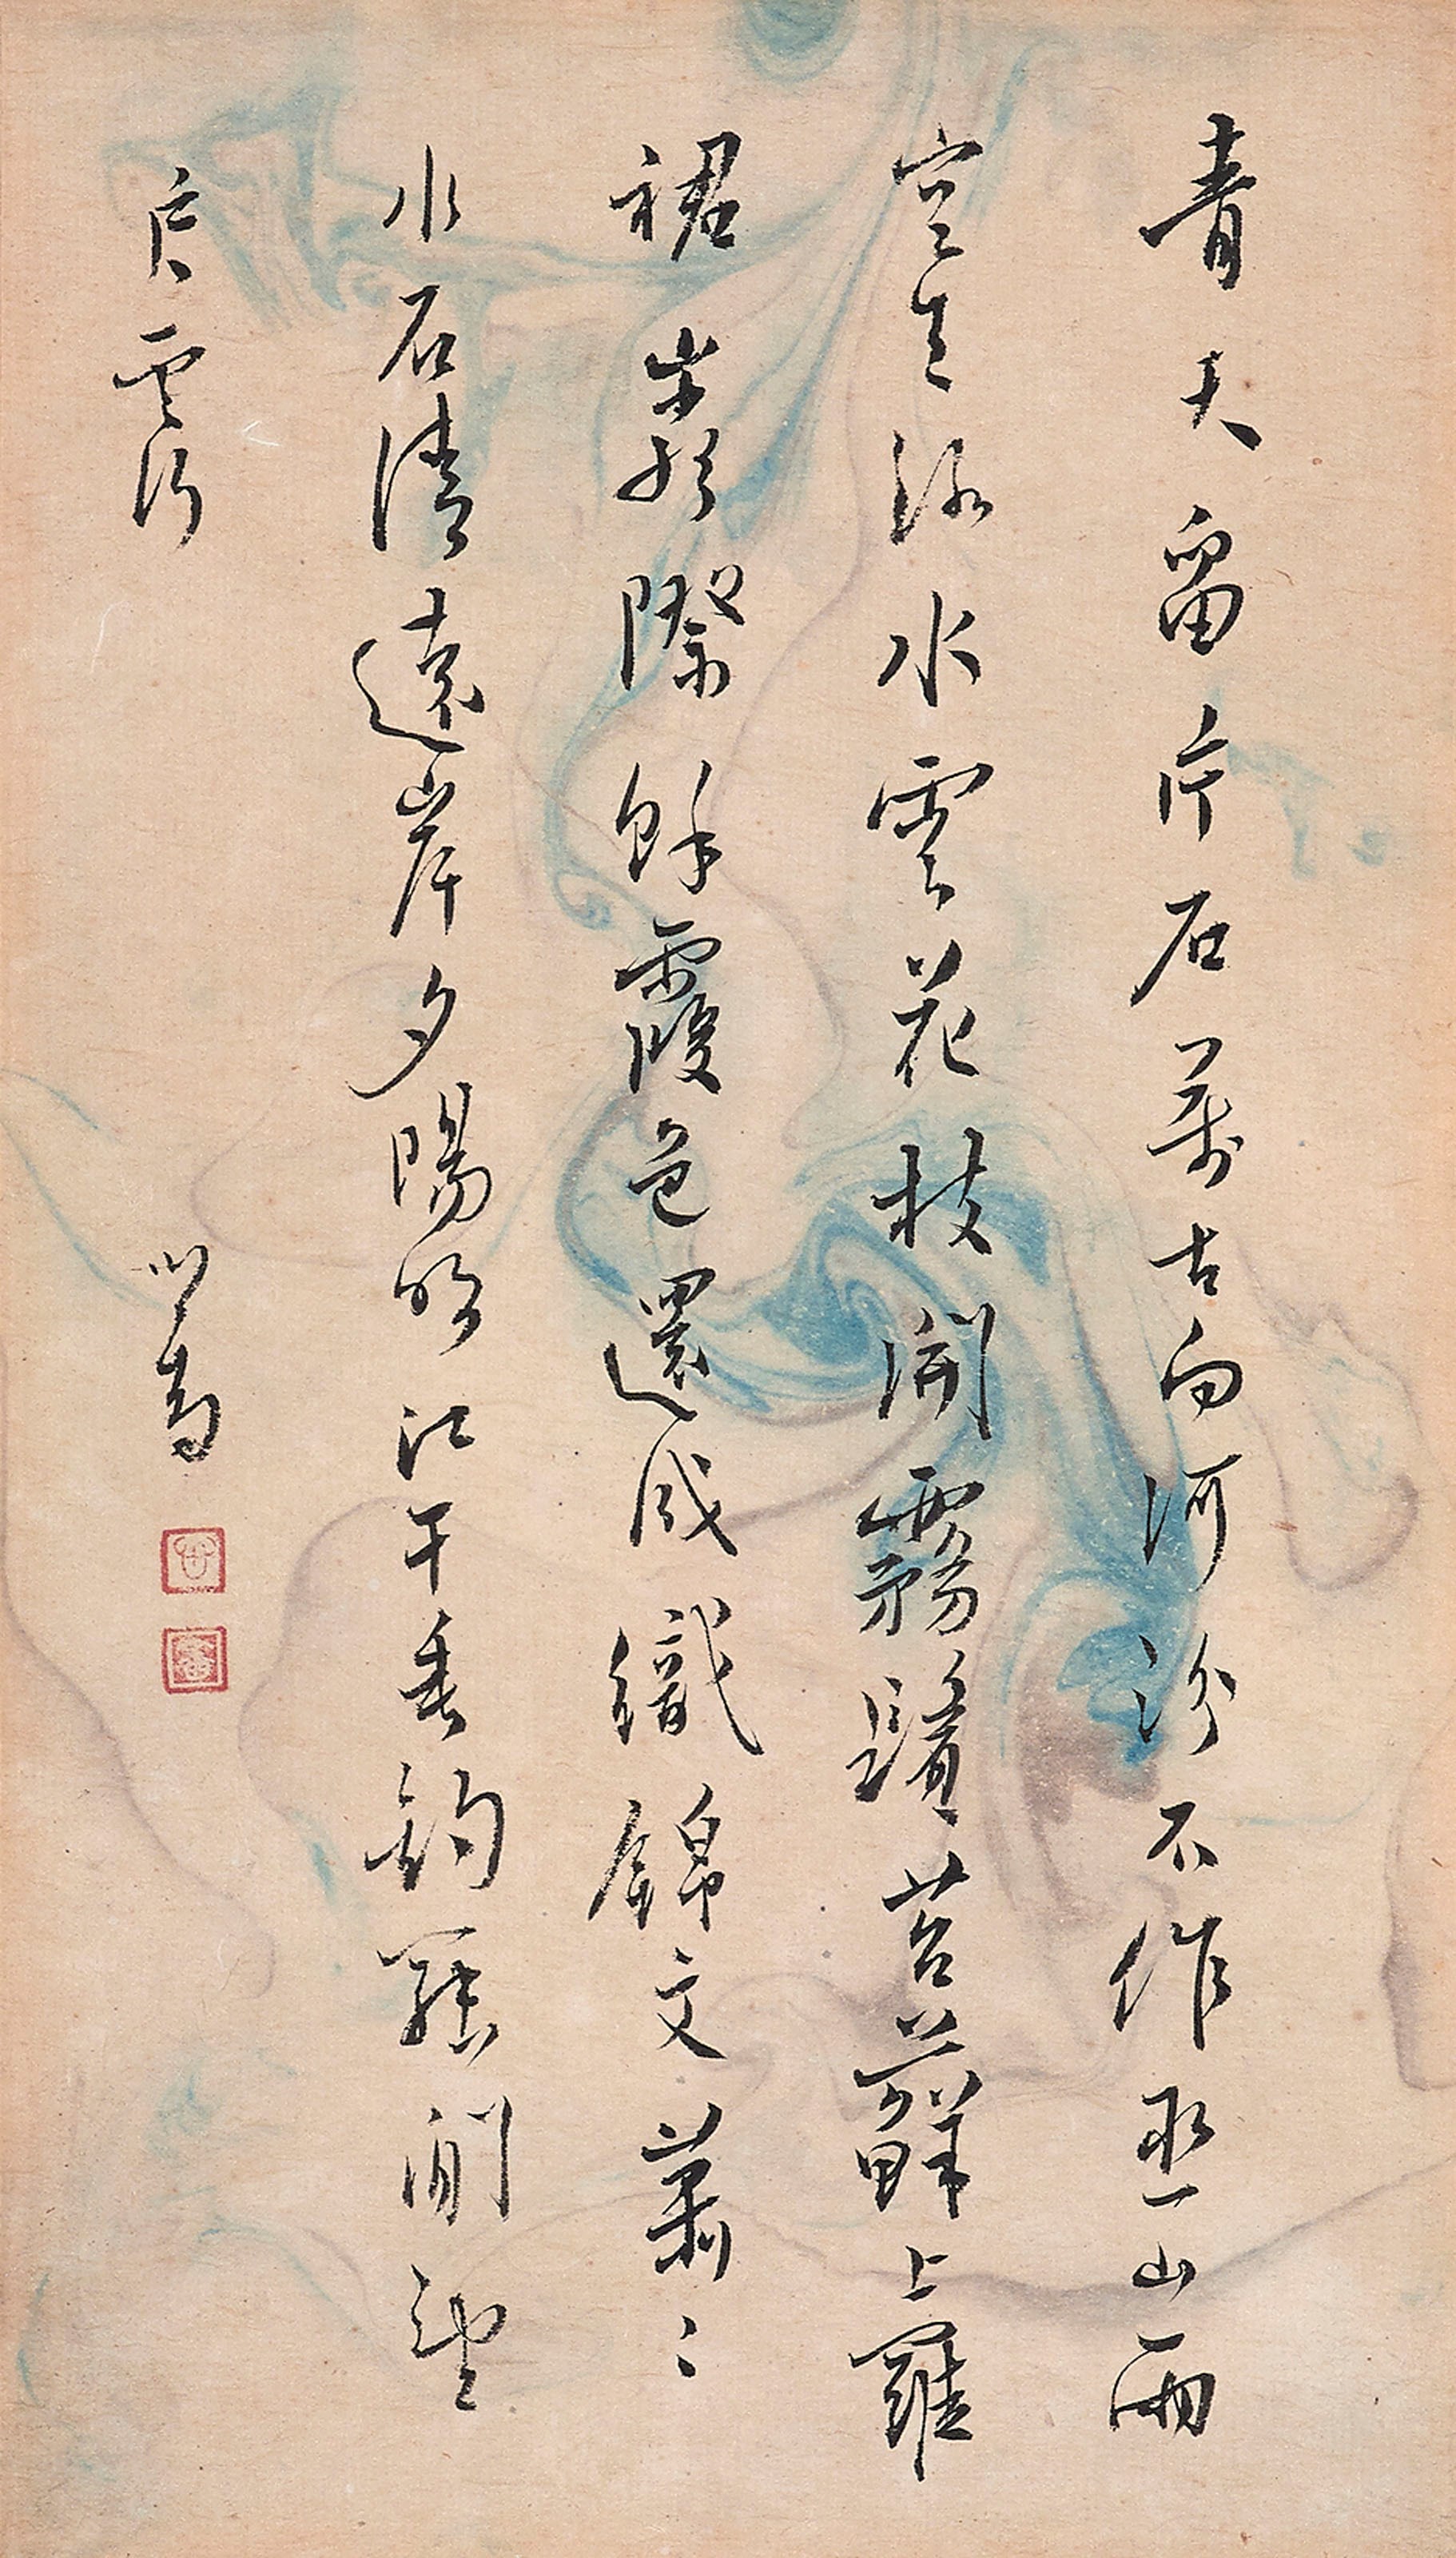 青天留片石萬古向河汾不作巫山雨
空生水雲花枝開霧鬢苔蘚上羅
裙巖際餘霞色還成織錦文蕭〻
水石清遠岸夕陽明江干垂釣罷閒望
片雲行
心畬